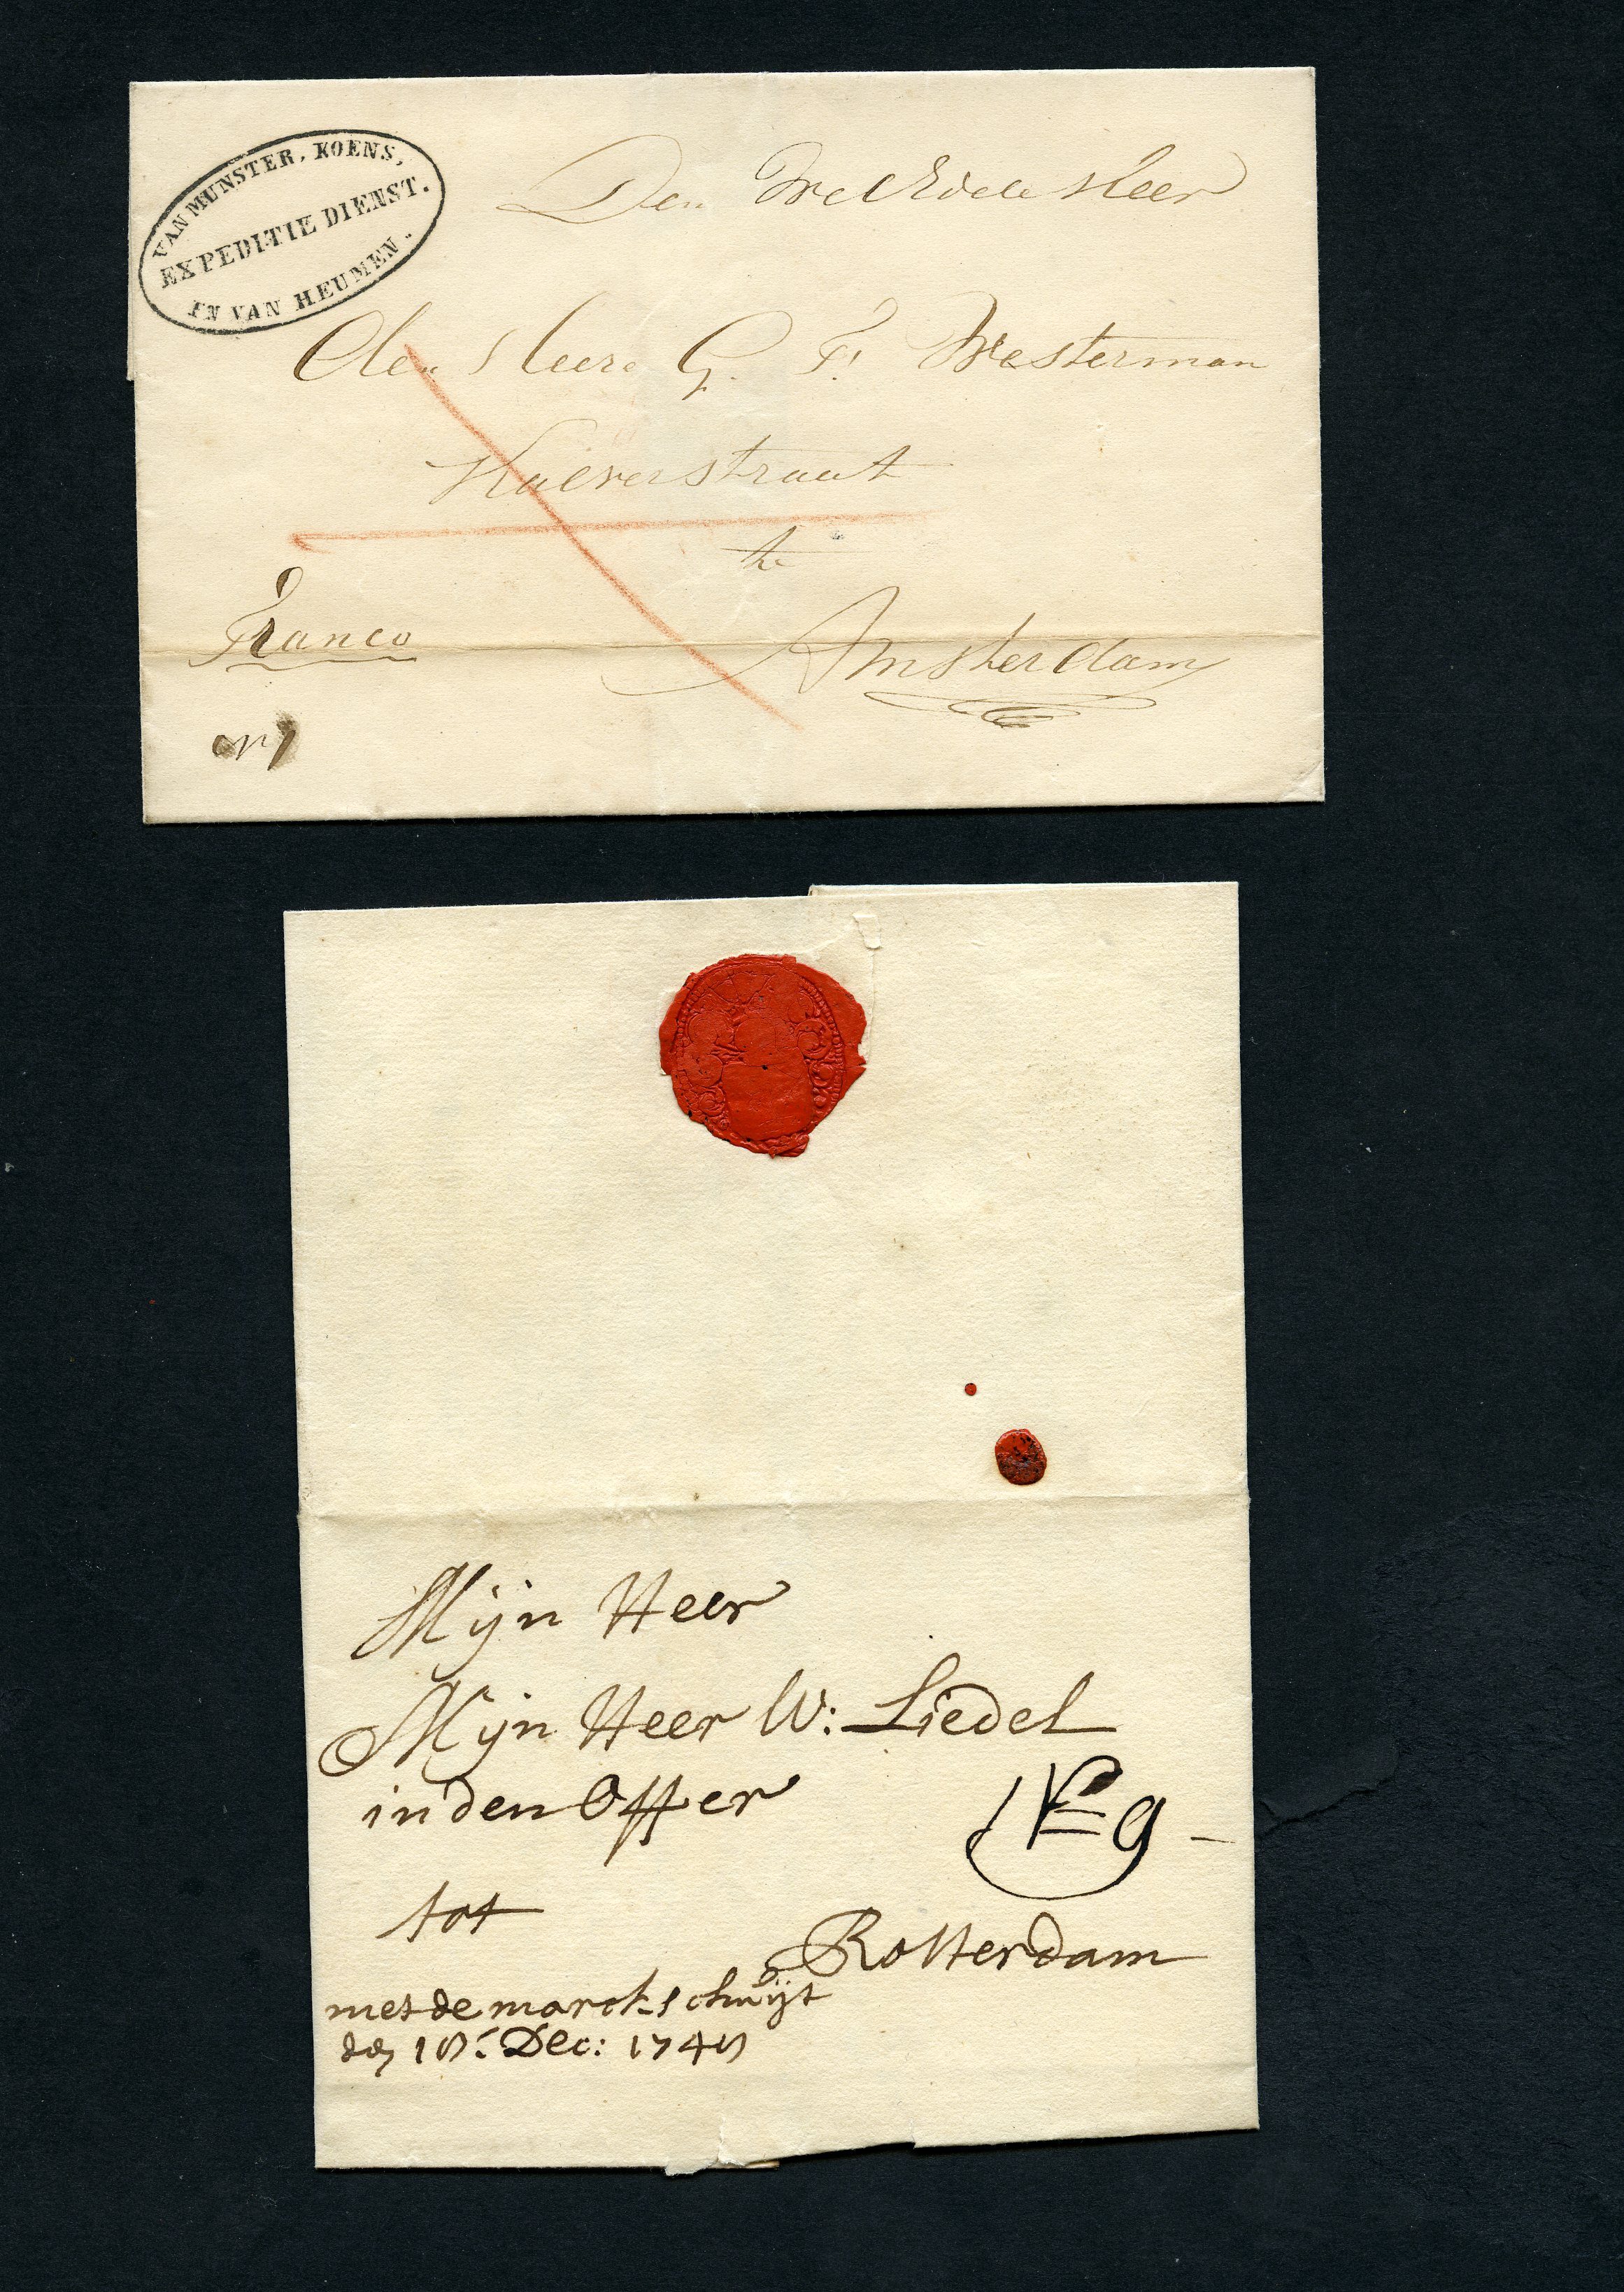 VAN MUNSTER, KOENS,
EXPEDITIE DIENST.
EN VAN HEUMEN.
Den WelEdele Heer
Den Heere G. F. Westerman
Kalverstraat
te
Franco
Amsterdam
Mijn Heer
Mijn Heer W: Liedel
in den Offer
tot
Rotterdam
met de marckschuijt
den Dec: